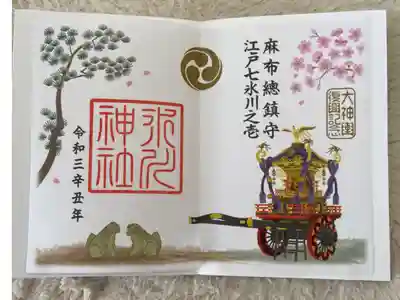 麻布總鎮守
江戸七氷川之壱
大神輿
復興記念
氷川
神社
令和三辛丑年